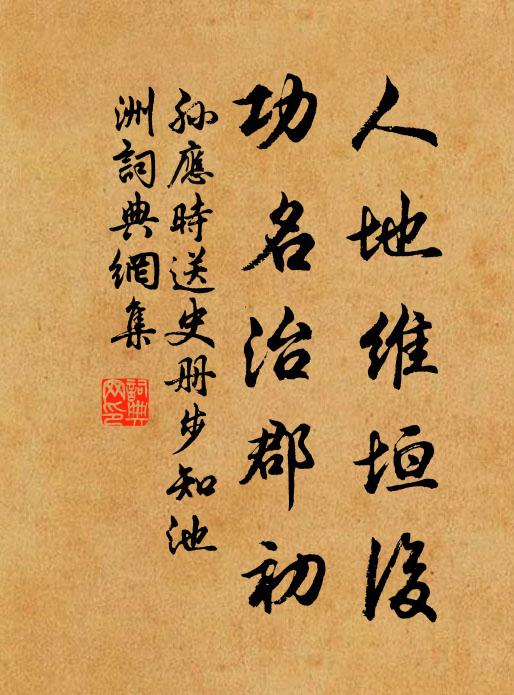 人地維垣後
功名治郡初
孙應時送史册步知池
洲詞典網集
詞典網印